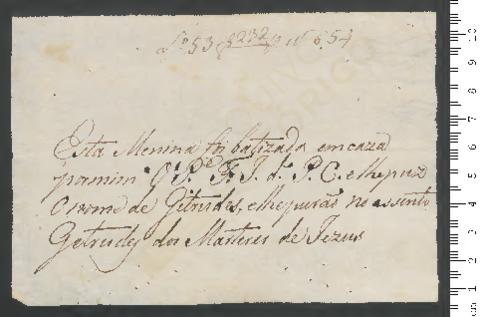 Lº 53 f 232 nº 654
Esta Menina foi batizada em caza
por mim O Pe F. J. da P. C. e lhe puz
O nome de Getrudes, e lhe purão no asento
Getrudes dos Marteres de Jezus